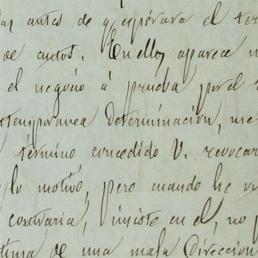 antes de q. espirara el ter
de autos. En ellos aparece
el negocio á prueba, por el
extemporanea determinacion, me
término concedido V. revocar
lo motivó, pero cuando he
contraria, insiste en el, no p
tima de una mala direccion